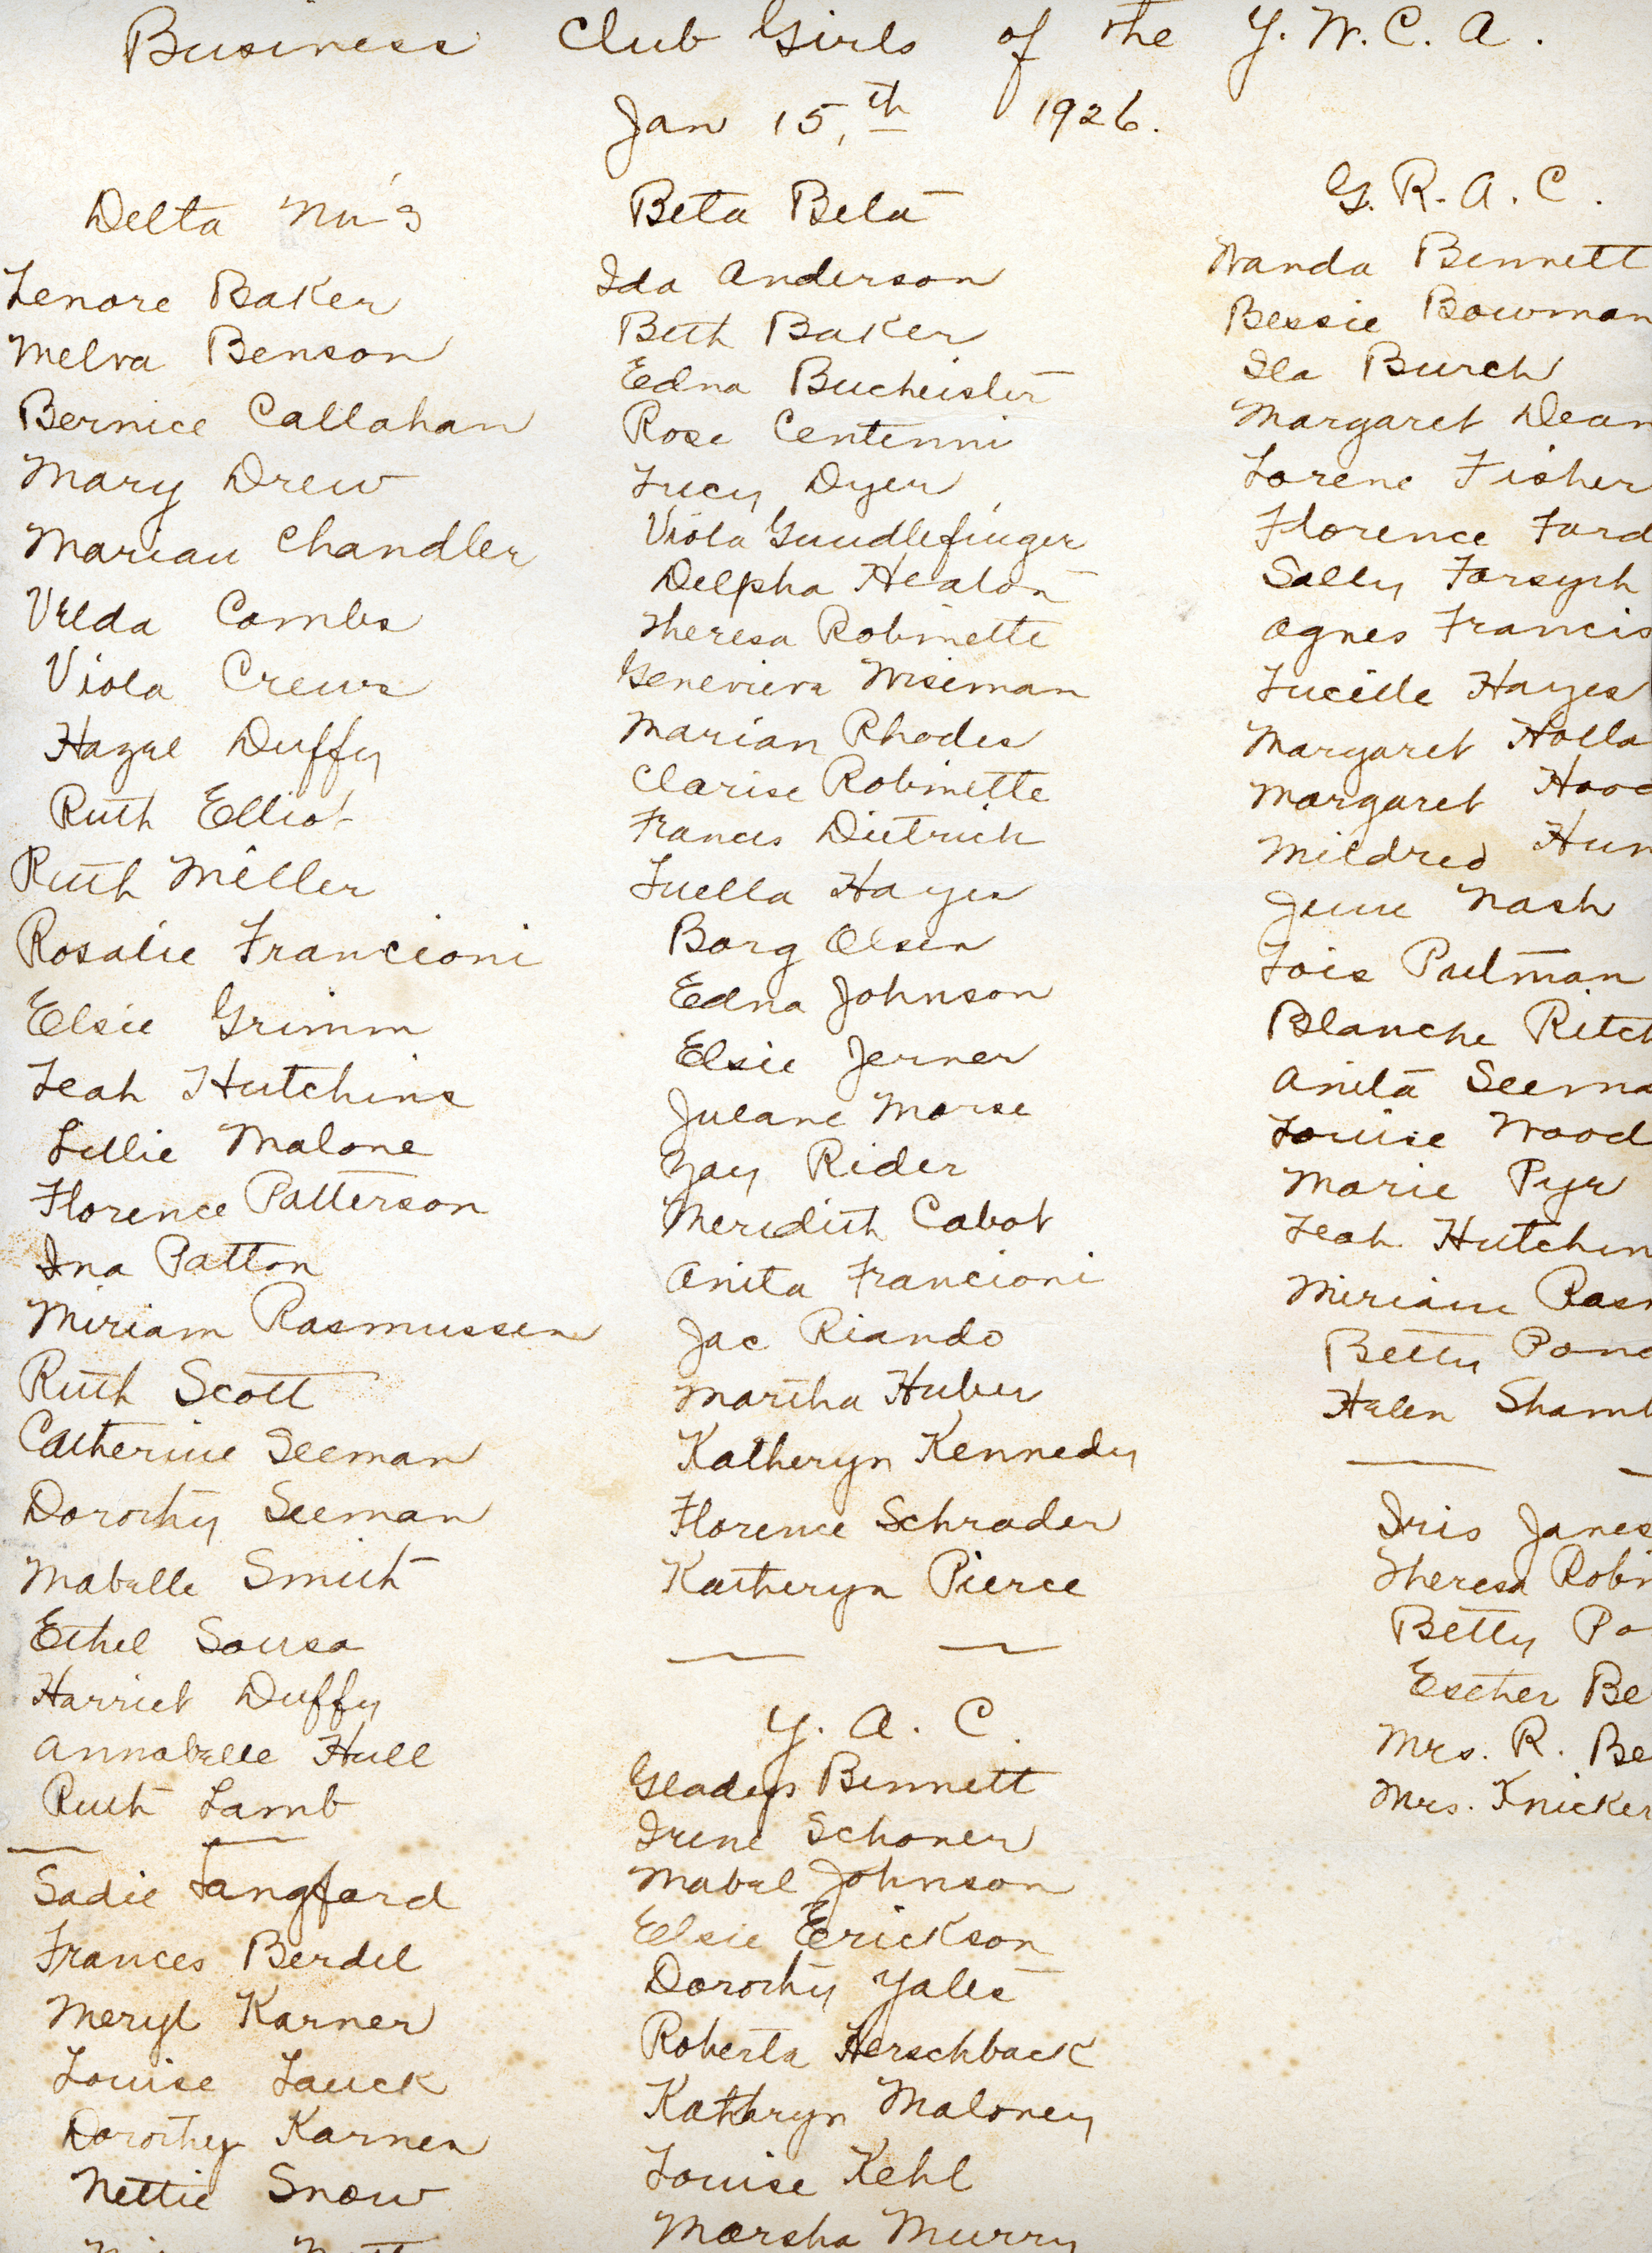 Business Club Girls of the Y. W. C. A.
Jan 15,th 1926.
Delta Nu's
Lenore Baker
Melva Benson
Bernice Callahan
Mary Drew
Marian Chandler
Velda Combs
Viola Crews
Hazel Duffy
Ruth Elliot
Ruth Miller
Rosalie Francioni
Elsie Grimm
Leah Hutchins
Lillie Malone
Florence Patterson
Ina Patton
Miriam Rasmussen
Ruth Scott
Catherine Seeman
Dorothy Seeman
Mabelle Smith
Ethel Sousa
Harriet Duffy
Annabelle Hull
Ruth Lamb
Sadie Langford
Frances Berdel
Meryl Karner
Louise Lauck
Dorothy Karner
Nettie Snow
Beta Beta
Ida Anderson
Beth Baker
Edna Bucheister
Rose Centenni
Lucy Dyer
Viola Gundlefinger
Delpha Heaton
Theresa Robinette
Genevieve Wiseman
Marian Rhodes
Clarise Robinette
Frances Dietrich
Luella Hayes
Borg Olsen
Edna Johnson
Elsie Jerner
Jueane Morse
Rider
Meridith Cabot
Anita Francioni
Jac Riando
Martha Huber
Katheryn Kennedy
Florence Schrader
Katheryn Pierce
Y. A. C.
Gladys Bennett
Irene Schoner
Mabel Johnson
Elsie Erickson
Dorothy Yates
Roberta Herschback
Kathryn Maloney
Louise Kehl
Marsha Murry
G. R. A. C.
Wanda Bennett
Bessie Bowman
Ila Burch
Margaret Dean
Lorene Fisher
Florence Ford
Sally Forsyth
Agnes Francis
Lucille Hayes
Margaret Holla
Margaret Hood
Mildred Hun
June Nash
Lois Pulman
Blanche Ritch
Anita Seema
Louise Wood
Marie Pyr
Leah Hutchin
Miriam Rasm
Betty Pond
Helen Shamb
Iris Janes
Theresa Robin
Betty Po
Esther Be
Mrs. R. Be
Mrs. Knicker